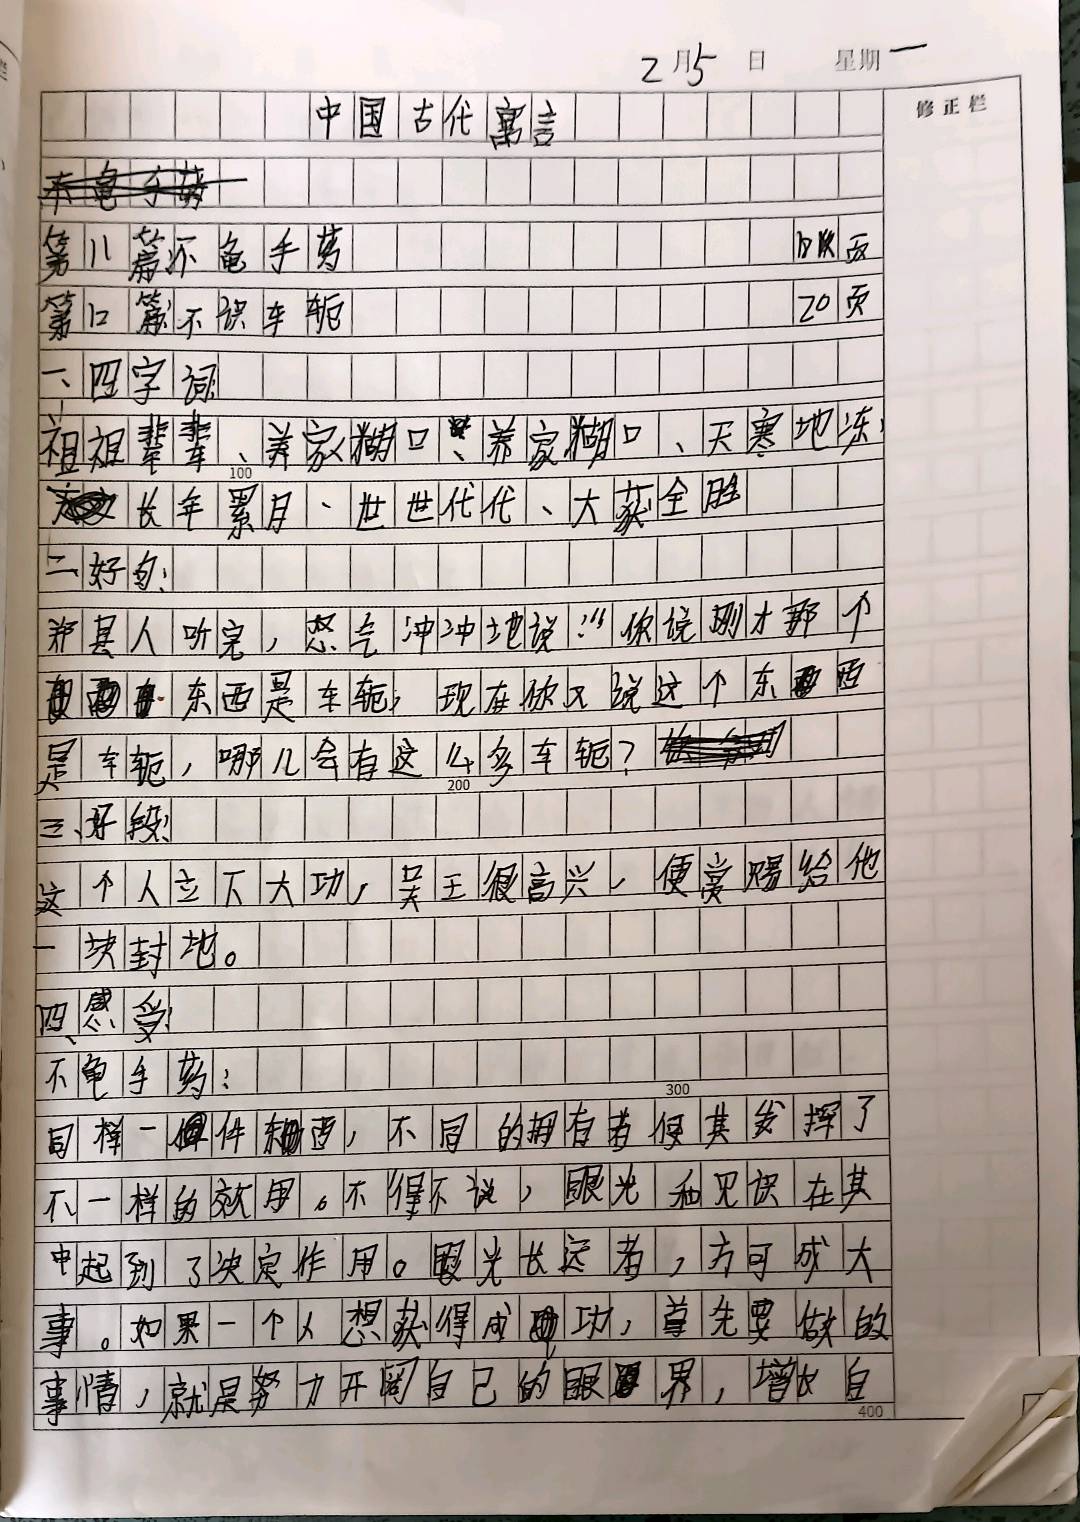 2月5日 星期一
修正栏
中国古代寓言
第11篇不龟手药 页
第12篇不识车轭 20页
一、四字词:
祖祖辈辈、养家糊口、养家糊口、天寒地冻、
长年累月、世世代代、大获全胜
100
二、好句:
郑县人听完,怒气冲冲地说:“你说刚才那个
东西是车轭,现在你又说这个东西
是车轭,哪儿会有这么多车轭?
200
三、好段:
这个人立下大功,吴王很高兴,便赏赐给他
一块封地。
四、感受:
不龟手药:
300
同样一件东西,不同的拥有者使其发挥了
不一样的效用。不得不说,眼光和见识在其
中起到了决定作用。眼光长远者,方可成大
事。如果一个人想获得成功,首先要做的
事情,就是努力开阔自己的眼界,增长自
400